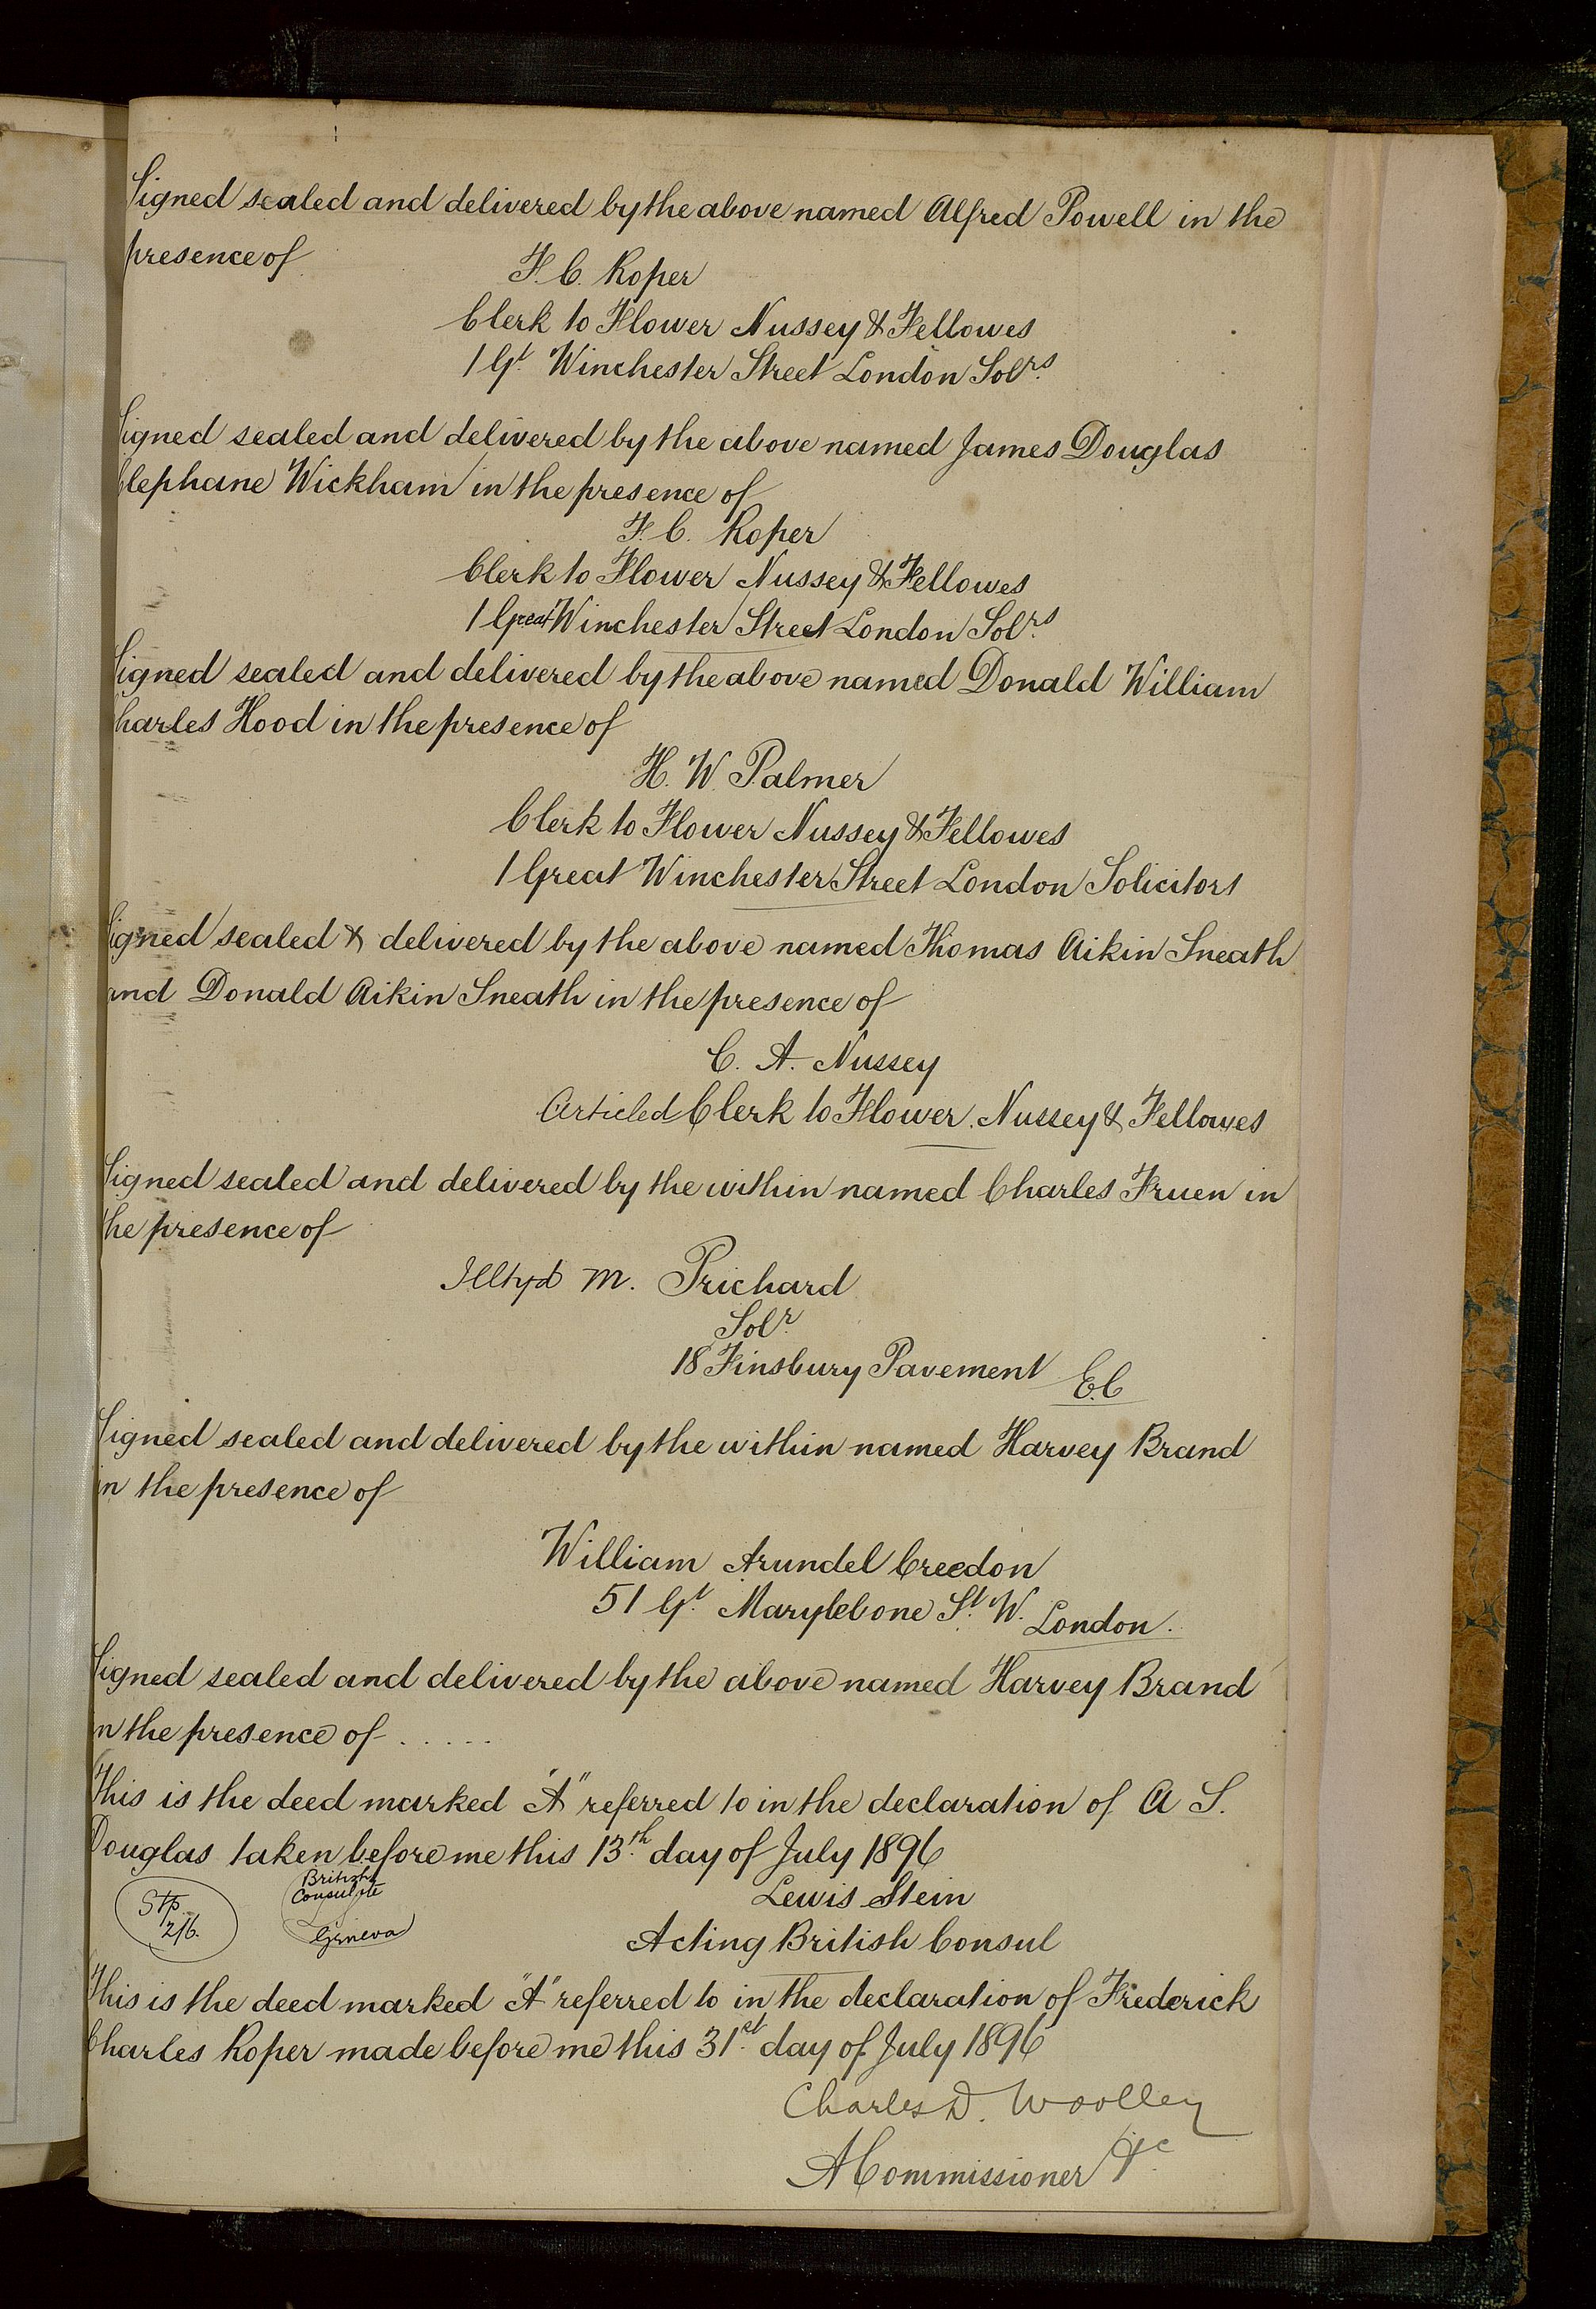 Signed sealed and delivered by the above named Alfred Powell in the
presence of
F. C. Roper
Clerk to Flower Nussey & Fellowes
1 Gt. Winchester Street London Solrs.
Signed sealed and delivered by the above named James Douglas
Clephane Wickham in the presence of
F. C. Roper
Clerk to Flower Nussey & Fellowes
1 Great Winchester Street London Solrs.
Signed sealed and delivered by the above named Donald William
Charles Hood in the presence of
H. W. Palmer
Clerk to Flower Nussey & Fellowes
1 Great Winchester Street London Solicitors
Signed sealed & delivered by the above named Thomas Aikin Sneath
and Donald Aikin Sneath in the presence of
C. A. Nussey
Articled Clerk to Flower. Nussey & Fellowes
Signed sealed and delivered by the within named Charles Fruen in
the presence of
Illtyd M. Prichard
Solr.
18 Finsbury Pavement E.C
Signed sealed and delivered by the within named Harvey Brand
in the presence of
William Arundel Creedon
51 Gt. Marylebone St. W. London.
Signed sealed and delivered by the above named Harvey Brand
in the presence of . . . . .
This is the deed marked "A" referred to in the declaration of A S.
Douglas taken before me this 13th. day of July 1896
British
Consulate
Geneva
Stp.
2/6.
Lewis Stein
Acting British Consul
This is the deed marked "A" referred to in the declaration of Frederick
Charles Roper made before me this 31st. day of July 1896
Charles D. Woolley
A Commissioner &c.